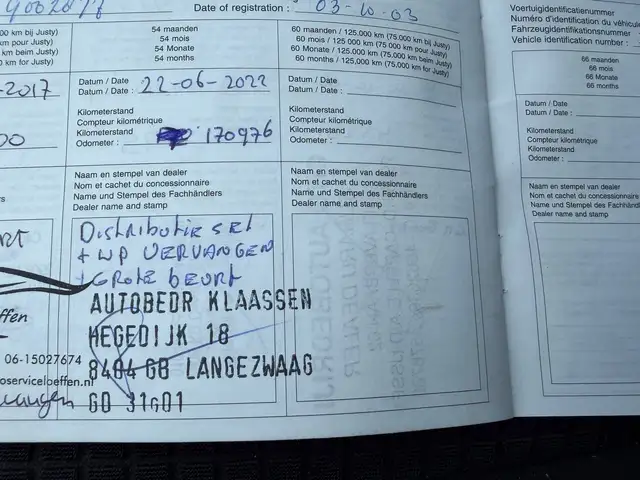 Date of registration : 03-10-03
54 maanden
54 mois
54 Monate
54 months
60 maanden / 125.000 km (75.000 km bij Justy)
60 mois / 125.000 km (75.000 km pour Justy)
60 Monate / 125.000 km (75.000 km beim Justy)
60 months / 125.000 km (75.000 km for Justy)
000 km bij Justy)
km pour Justy)
km beim Justy)
km for Justy)
-2017
Datum / Date
Datum / Date : 22-06-2022
Kilometerstand
Compteur kilométrique
Kilometerstand
Odometer : 170976
Naam en stempel van dealer
Nom et cachet du concessionnaire
Name und Stempel des Fachhändlers
Dealer name and stamp
Distributie set
+ WP vervangen
+ Grote beurt
AUTOBEDR KLAASSEN
HEGEDIJK 18
8404 GB LANGEZWAAG
GD 31601
06-15027674
oserviceloeffen.nl
Datum / Date
Datum / Date :
Kilometerstand
Compteur kilométrique
Kilometerstand
Odometer :
Naam en stempel van dealer
Nom et cachet du concessionnaire
Name und Stempel des Fachhändlers
Dealer name and stamp
Voertuigidentificatienummer
Numéro d'identification du véhicule
Fahrzeugidentifikationsnummer
Vehicle identification number :
66 maanden
66 mois
66 Monate
66 months
Datum / Date
Datum / Date :
Kilometerstand
Compteur kilométrique
Kilometerstand
Odometer :
Naam en stempel van dealer
Nom et cachet du concessionnaire
Name und Stempel des Fachhändlers
Dealer name and stamp